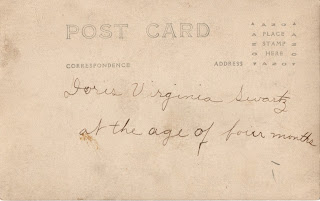 POST CARD
PLACE
STAMP
HERE
CORRESPONDENCE
ADDRESS
Doris Virginia Swartz
at the age of four months